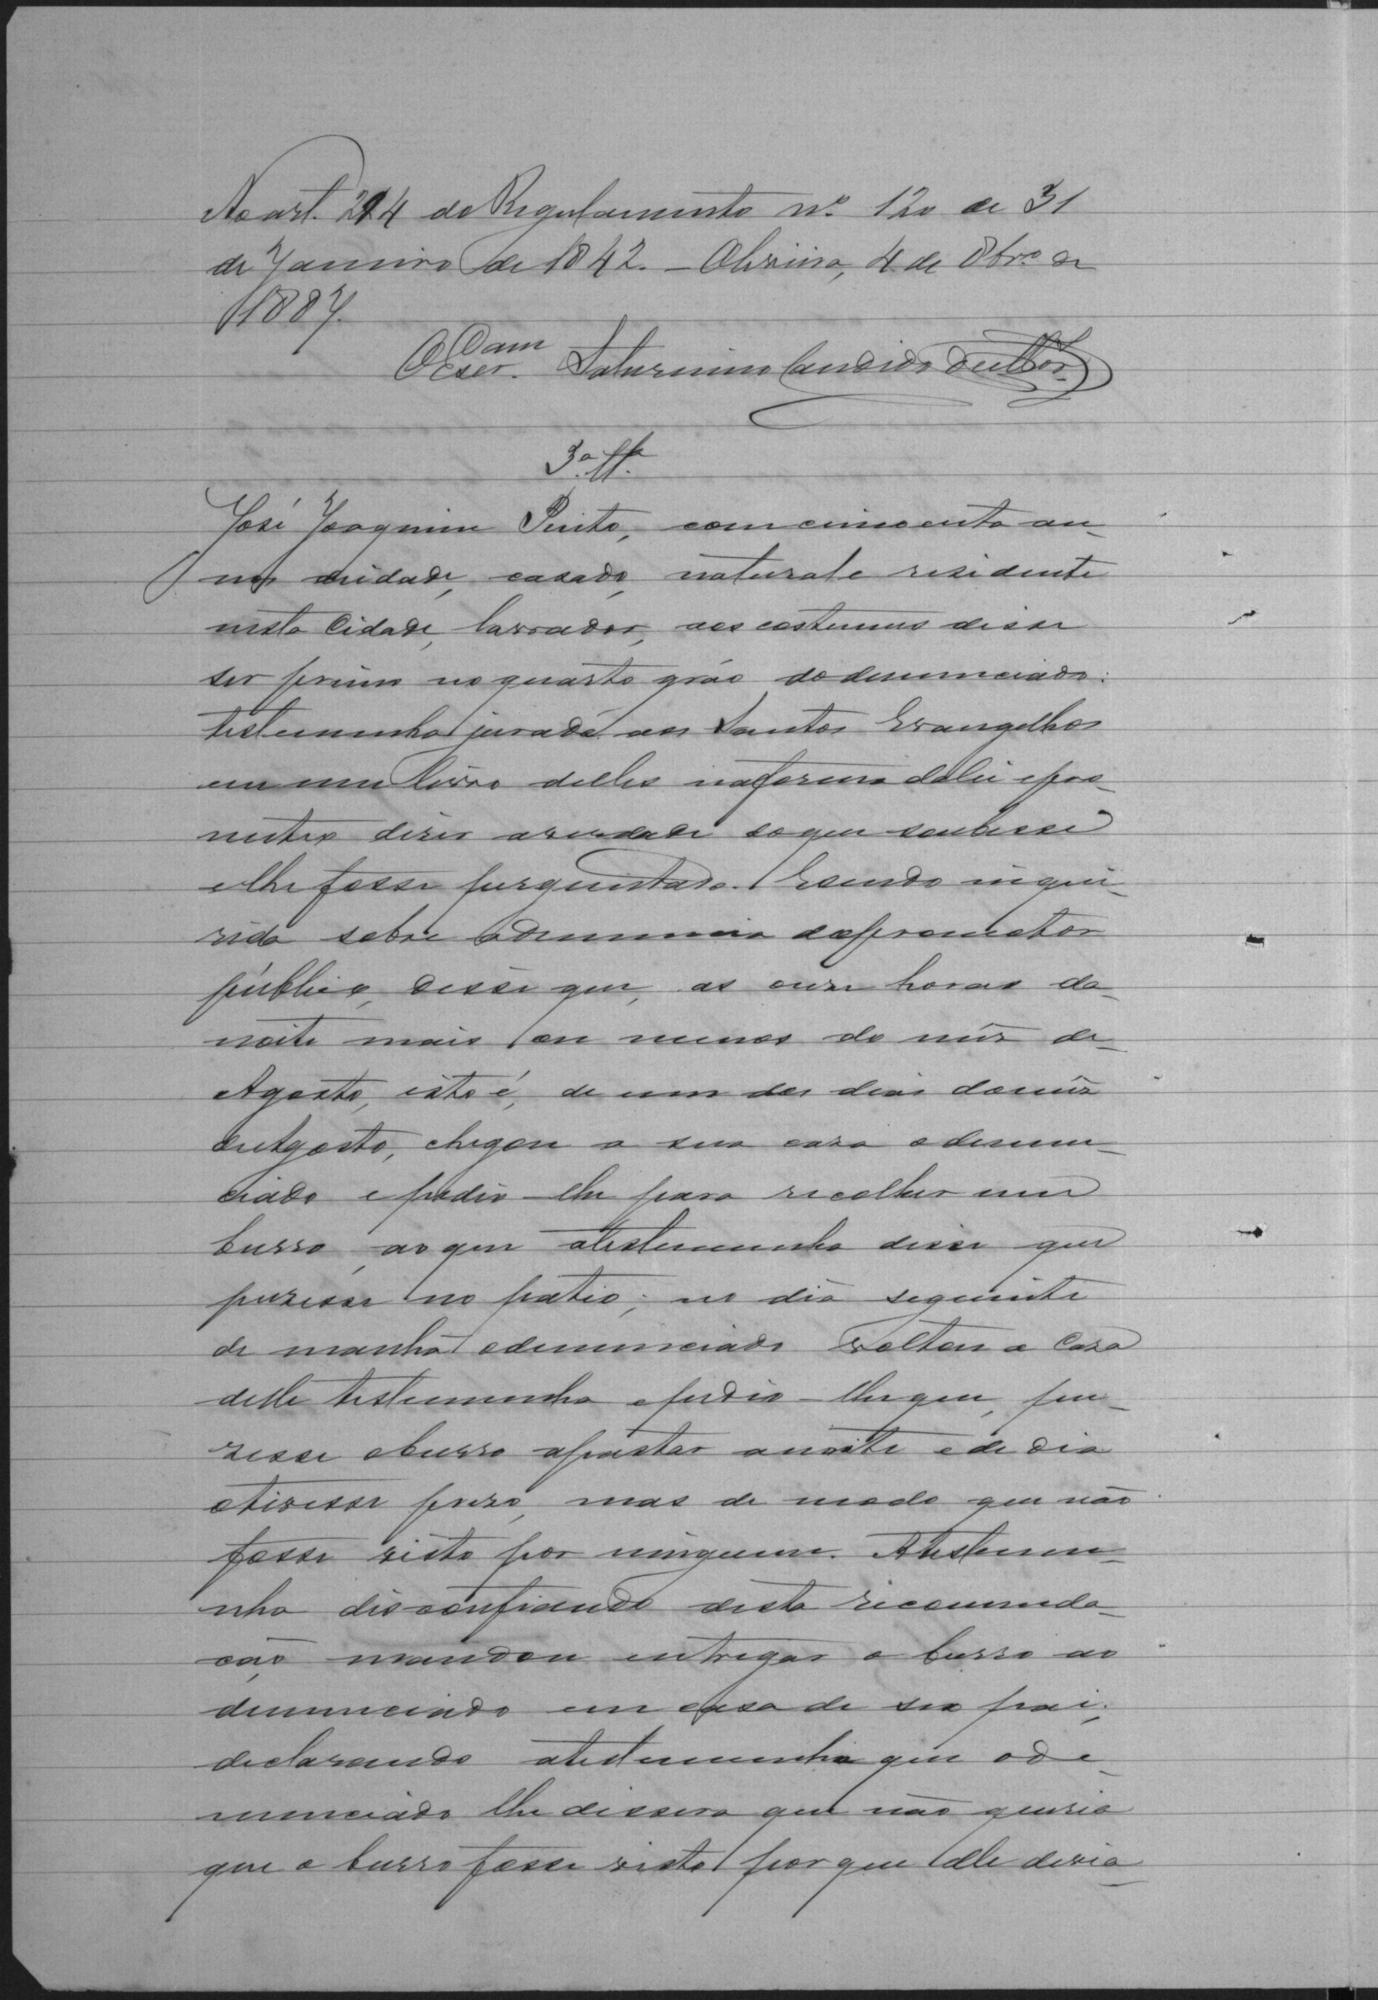 No art. 294 do Regulamento nº 120 de 31
de Janeiro de 1842. – Oliveira, 4 de 8brº de
1887.
O Escr. Saturnino Candido
3ª Tª
José Joaquim Pinto, com cincoenta an-
nos de idade, casado, natural e residente
nesta Cidade, lavrador, aos costumes disse
ser primo no quarto gráo do denunciado:
testemunha jurada aos Santos Evangelhos
em um livro delles na forma da lei e pro-
metteo diser a verdade do que soubesse
e lhe fosse perguntado. E sendo inqui-
rido sobre a denuncia do promotor
público, disse que, as onze horas da
noite mais ou menos do mês de
Agosto, isto é, de um dos dias do mês
de Agosto, chegou a sua casa o denun-
ciado e pedio-lhe para recolher um
burro, ao que a testemunha disse que
puzesse no patio; no dia seguinte
de manhã o denunciado voltou a Casa
delle testemunha e pedio-lhe que, pu-
zesse o burro a pastar a noite e de dia
o tivesse prezo, mas de modo que não
fosse visto por ninguem. A testemu-
nha disconfiando desta recommenda-
ção mandou entregar o burro ao
denunciado em casa de seu pai;
declarando a testemunha que o de-
nunciado lhe dissera que não queria
que o burro fosse visto porque elle devia